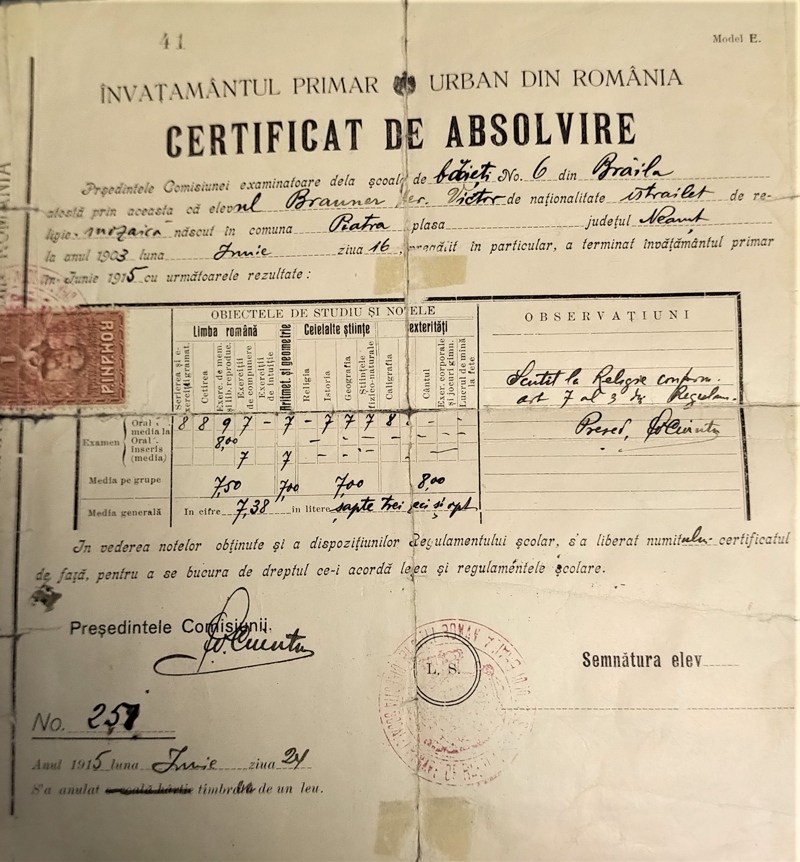 41
Model E.
ÎNVAȚAMÂNTUL PRIMAR URBAN DIN ROMÂNIA
CERTIFICAT DE ABSOLVIRE
Președintele Comisiunei examinatoare dela școala de băieți No. 6 din Brăila
atestă prin aceasta că elevul Brauner Her. Victor de naționalitate israilet de re-
ligie mozaica născut în comuna Piatra plasa județul Neamț
la anul 1903 luna Iunie ziua 16, pregătit în particular, a terminat învățământul primar
în Iunie 1915 cu următoarele rezultate :
OBIECTELE DE STUDIU ȘI NOTELE
OBSERVAȚIUNI
Limba română
Aritmet. și geometrie
Celelalte științe
exterități
Scrierea și e-
xerciții gramat.
Cetirea
Exerc. de mem.
și lib. reproduc.
Exerciții
de compunere
Exerciții
de intuiție
Religia
Istoria
Geografia
Științele
fizico-naturale
Caligrafia
Cântul
Exer. corporale
și jocuri gimn.
Lucrul de mină
la fete
Scutit la Religie conform.
art 7 al 3 din Regulam.
Presed,
Examen
Oral 8 8 9 7 - 7 - 7 7 7 8 - -
media la
Oral 8,00
înscris
(media) 7 7
Media pe grupe 7,50 7,00 7,00 8,00
Media generală In cifre 7,38 in litere șapte trei zeci și opt
In vederea notelor obținute și a dispozițiunilor Regulamentului școlar, s'a liberat numitului certificatul
de față, pentru a se bucura de dreptul ce-i acordă legea și regulamentele școlare.
Președintele Comisiunii,
L. S.
Semnătura elev
No. 251
Anul 1915 luna Iunie ziua 24
S'a anulat timbrul de un leu.
ROMÂNIA
1